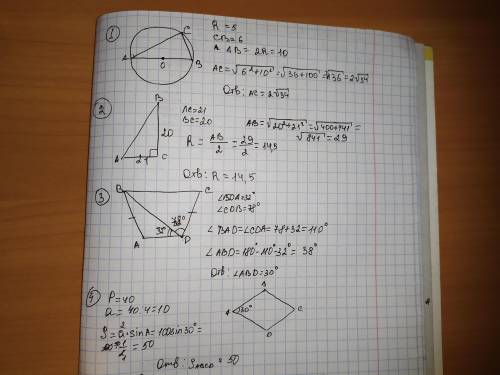 1
R = 5
CB = 6
A AB = 2R = 10
AC = √6²+10² = √36+100 = √136 = 2√34
Отв: AC = 2√34
C
A
O
B
2
B
20
A
21
C
AC = 21
BC = 20
AB = √20²+21² = √400+441 =
√841 = 29
R = AB/2 = 29/2 = 14,5
Отв: R = 14,5
3
B
C
A
D
32°
78°
∠BDA = 32°
∠CDB = 78°
∠BAD = ∠CDA = 78+32 = 110°
∠ABD = 180°-110°-32° = 38°
Отв: ∠ABD = 30°
4
P = 40
a = 40:4 = 10
S = a²·sinA = 100sin30° =
1/2 = 50
A
30°
C
Отв: SABCD = 50